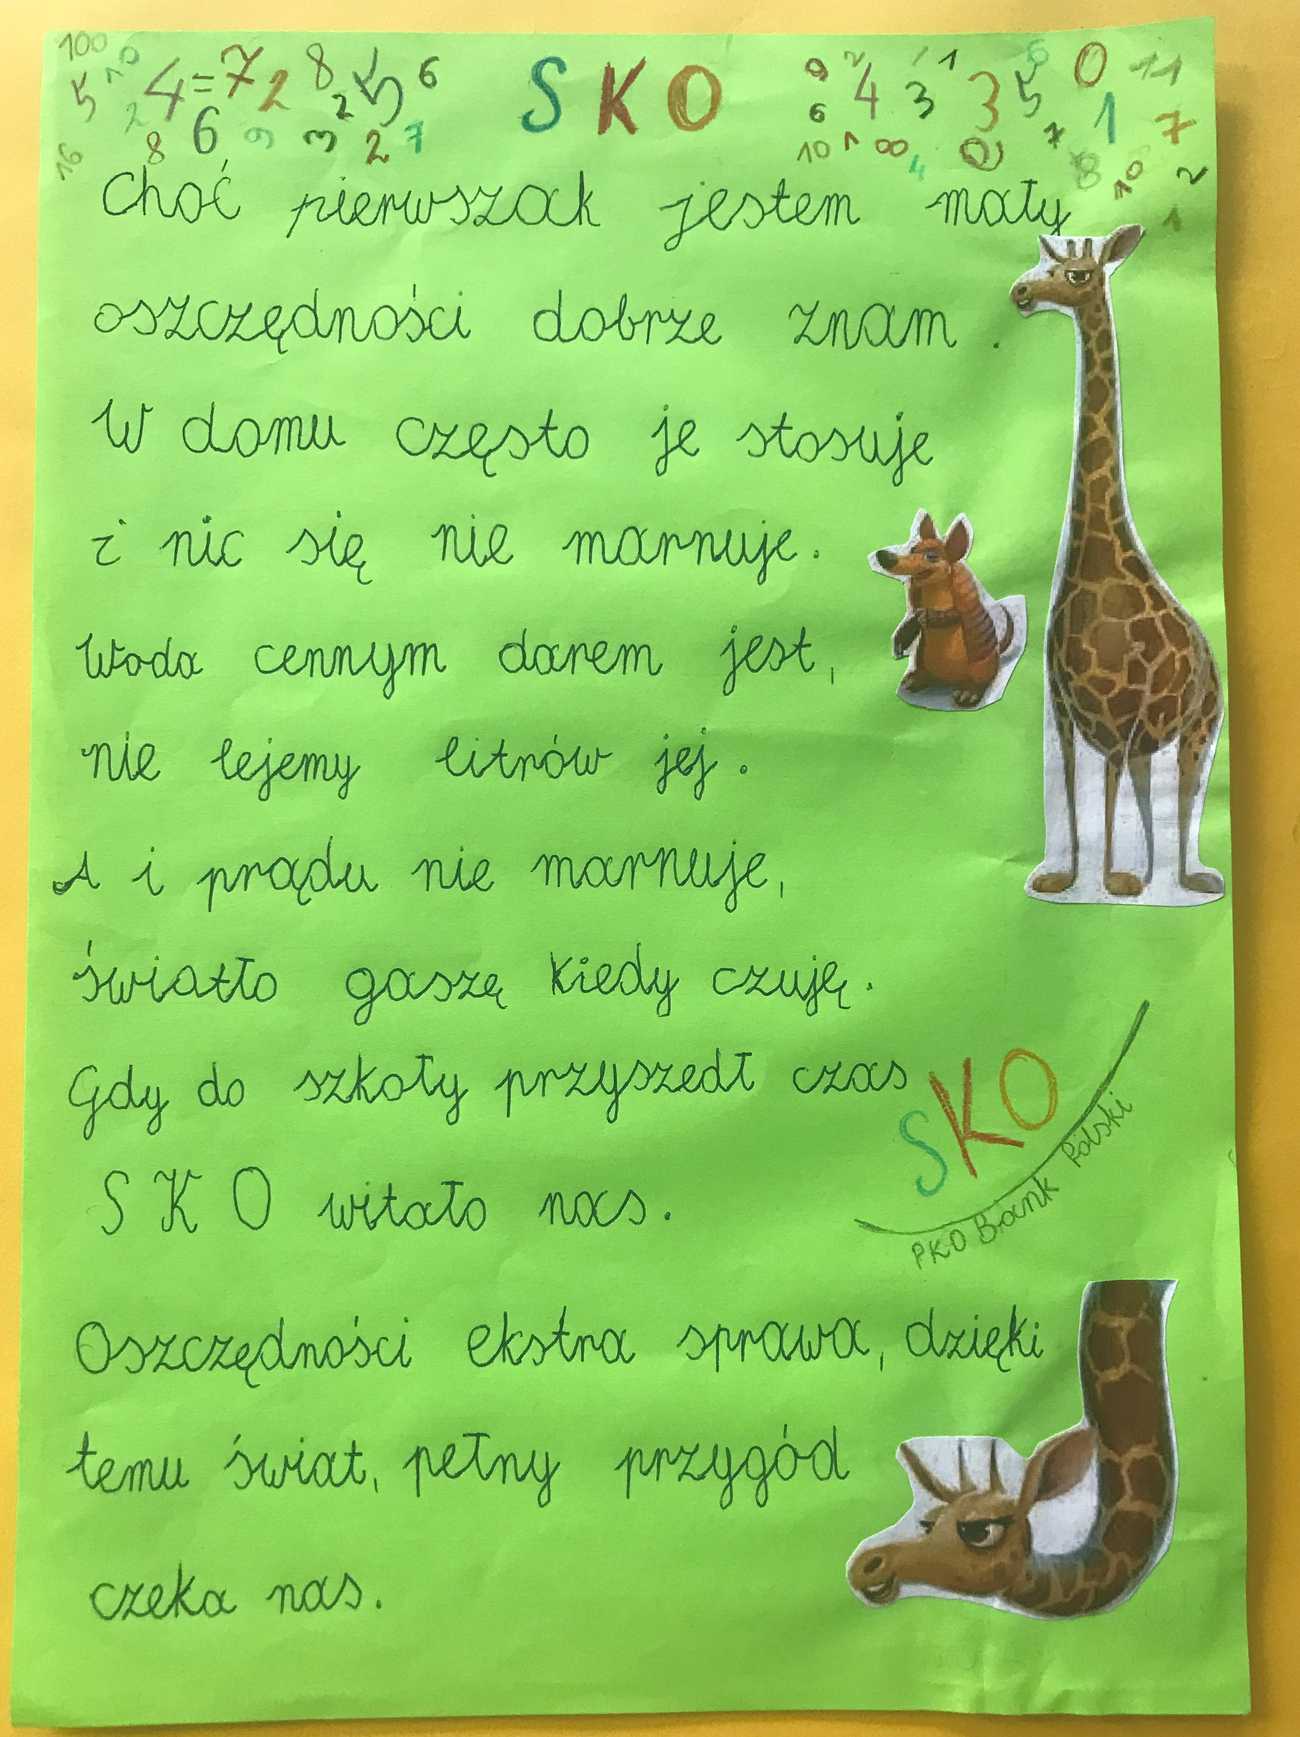 SKO
Choć pierwszak jestem mały
oszczędności dobrze znam.
W domu często je stosuje
i nic się nie marnuje.
Woda cennym darem jest,
nie lejemy litrów jej.
A i prądu nie marnuje,
światło gaszę kiedy czuję.
Gdy do szkoły przyszedł czas
SKO witało nas.
SKO
PKO Bank Polski
Oszczędności ekstra sprawa, dzięki
temu świat, pełny przygód
czeka nas.